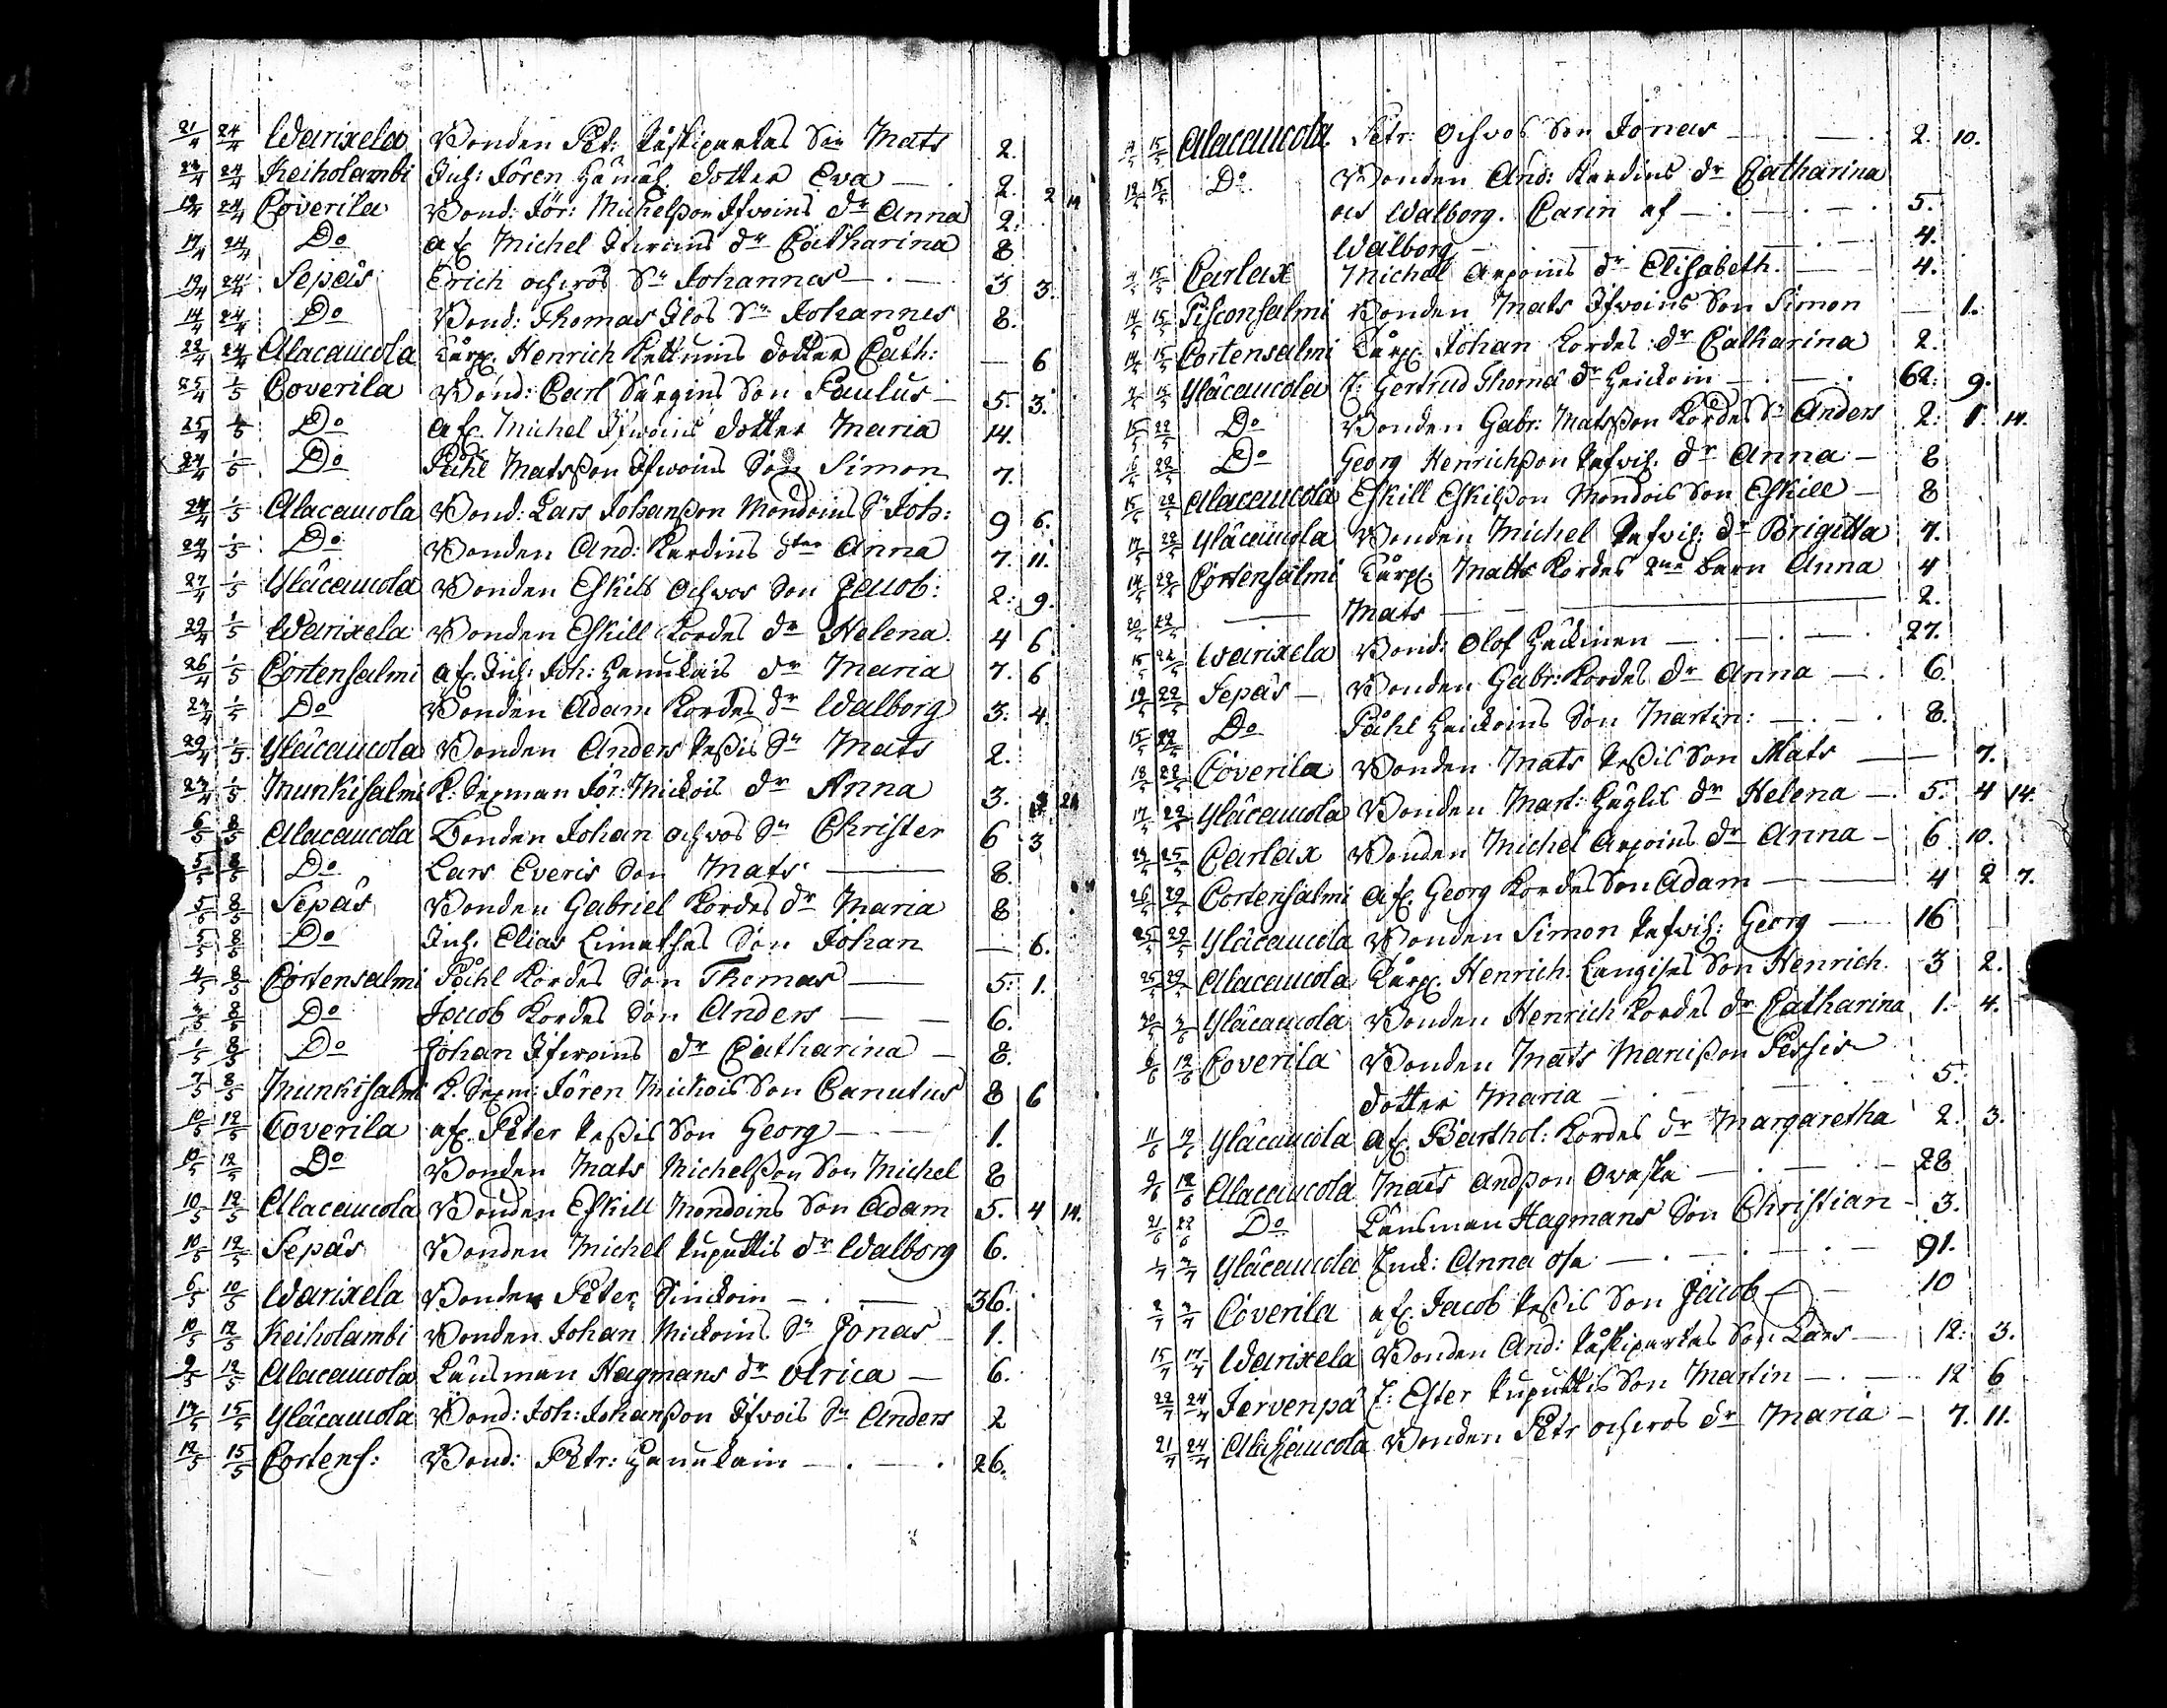 21/4 24/4 Warixela Bonden Pet: Räskiparkas Son Mats 2.
23/4 24/4 Keiholambi Inh: Jören Hämäl. dotter Eva — 2. 2 14
19/4 24/4 Coverila Bond: Jör: Michelßon Ifvoins dr Anna 2.
17/4 24/4 Do afsk. Michel Ifvoins dr Catharina 8
19/4 24/4 Sepäis Erich ochvos Sn Johannes — . — 3 3.
14/4 24/4 Do Bond: Thomas Ilos Sn Johannes 8.
22/4 24/4 Alacaucola Kärg. Henrich Kettuins dotter Cath: — 6
25/4 1/5 Coverila Bond: Carl Särgins Son Paulus — 5. 3.
25/4 1/5 Do afsk. Michel Ifvoins dotter Maria 14.
24/4 1/5 Do Påhl Matsßon Ifvoins Son Simon 7.
24/4 1/5 Alacaucola Bond: Lars Johanßon Mondoins Sn Joh: 9 6.
24/4 1/5 Do Bonden And: Kardins dter Anna 7. 11.
27/4 1/5 Ylâcaucola Bonden Eskils Ochvos Son Jacob: 2: 9.
29/4 1/5 Warixela Bonden Eskill Kordes dr Helena 4 6
26/4 1/5 Cortensalmi afsk. Inh: Joh: Hanukais dr Maria 7. 6
1/5 Do Bonden Adam Kordes dr Walborg 3. 4.
29/4 1/5 Ylâcaucola Bonden Anders Peßis Sn Mats 2.
1/5 Munkisalmi K. Sexman Jör: Mickois dr Anna 3.
6/5 8/5 Alacaucola Bonden Johan ochvos Sn Christer 6 3
5/5 8/5 Do Lars Everis Son Mats — 8.
5/5 8/5 Sepâs Bonden Gabriel Kordes dr Maria 8
5/5 8/5 Do Inh. Elias Limathes Son Johan — 6.
4/5 8/5 Cortensalmi Påhl Kordes Son Thomas — 5: 1.
8/5 Do Jacob Kordes Son Anders — — 6.
1/5 8/5 Do Johan Ifvoins dr Catharina — 8.
7/5 8/5 Munkisalmi K. Sexm: Jören Mickois Son Canutus 8 6
10/5 12/5 Coverila afsk. Peter Peßis Son Georg — — 1.
10/5 12/5 Do Bonden Mats Michelßon Son Michel 8
10/5 12/5 Alacaucola Bonden Eskill Mondoins Son Adam 5. 4 14.
10/5 12/5 Sepâs Bonden Michel Kuputtis dr Walborg 6.
6/5 10/5 Warixela Bonden Peter Sinckoin — . — 36.
10/5 12/5 Keiholambi Bonden Johan Mickoins Sn Jonas 1.
9/5 12/5 Alacaucola Länsman Hagmans dr Ulrica — 6.
14/5 15/5 Ylâcaucola Bond: Joh: Johanßon Ifvois Sn Anders 2
12/5 15/5 Cortens: Bond: Petr: Hanukain — . — . 26.
15/5 Alacaucola. Petr: Ochvos Son Jonas — . — . 2. 10.
12/5 15/5 Do. Bonden And: Kardins dr Catharina
och Walborg. Carin af — . — . — . 5.
Walborg — . — . — . 4.
15/5 Carlax Michel Arpoins dr Elisabeth. — 4.
14/5 15/5 Pisconsalmi Bonden Mats Ifvoins Son Simon — 1.
14/5 15/5 Cortensalmi Kärg. Johan Kordes dr Catharina 2.
15/5 Ylâcaucola J: Gertrud Thoma dr Heickoin — . — . 62. 9.
15/5 22/5 Do Bonden Gabr: Matsßon Kordes Sn Anders 2: 1. 14.
16/5 22/5 Do Georg Henrichßon dr Anna — 8
15/5 22/5 Alacaucola Eskill Eskilßon Mondois Son Eskill — 8
17/5 22/5 Ylâcaucola Bonden Michel dr Brigitta 7.
14/5 22/5 Cortensalmi Kärg. Matts Kordes 2ne barn Anna 4
20/5 22/5 — Mats — 2.
15/5 22/5 Warixela Bond: Olof Häckinen — . — . — . 27.
19/5 22/5 Sepâs — Bonden Gabr: Kordes dr Anna — . 6.
15/5 22/5 Do Påhl Heickoins Son Martin: — . — . 8.
18/5 22/5 Coverila Bonden Mats Peßis Son Mats — 7.
17/5 22/5 Ylâcaucola Bonden Mart: dr Helena — . 5. 4 14.
24/5 25/5 Carlax Bonden Michel Arpoins dr Anna — 6 10.
26/5 29/5 Cortensalmi afsk. Georg Kordes Son Adam — 4 2 7.
25/5 29/5 Ylâcaucola Bonden Simon Georg — 16
25/5 29/5 Alacaucola Kärg. Henrich Langises Son Henrich. 3 2.
30/5 Ylâcaucola Bonden Henrich Kordes dr Catharina 1. 4.
6/6 12/6 Coverila Bonden Mats Manißon Pessis
dotter Maria — . — . 5.
11/6 12/6 Ylâcaucola afsk. Barthol: Kordes dr Margaretha 2. 3.
9/6 12/6 Alacaucola Mats Andßon Ovaska — . — . — 28
21/6 22/6 Do Länsman Hagmans Son Christian — 3.
Ylâcaucola Enk: Anna Osa — . — . — . 91.
Coverila afsk. Jacob Peßis Son Jacob — 10
15/7 17/7 Warixela Bonden And: Räskiparkas Son Lars — 12: 3.
22/7 24/7 Jervenpä J: Ester Kuputtis Son Martin — . 12 6
21/7 24/7 Alacaucola Bonden Petr ochvos dr Maria — 7. 11.